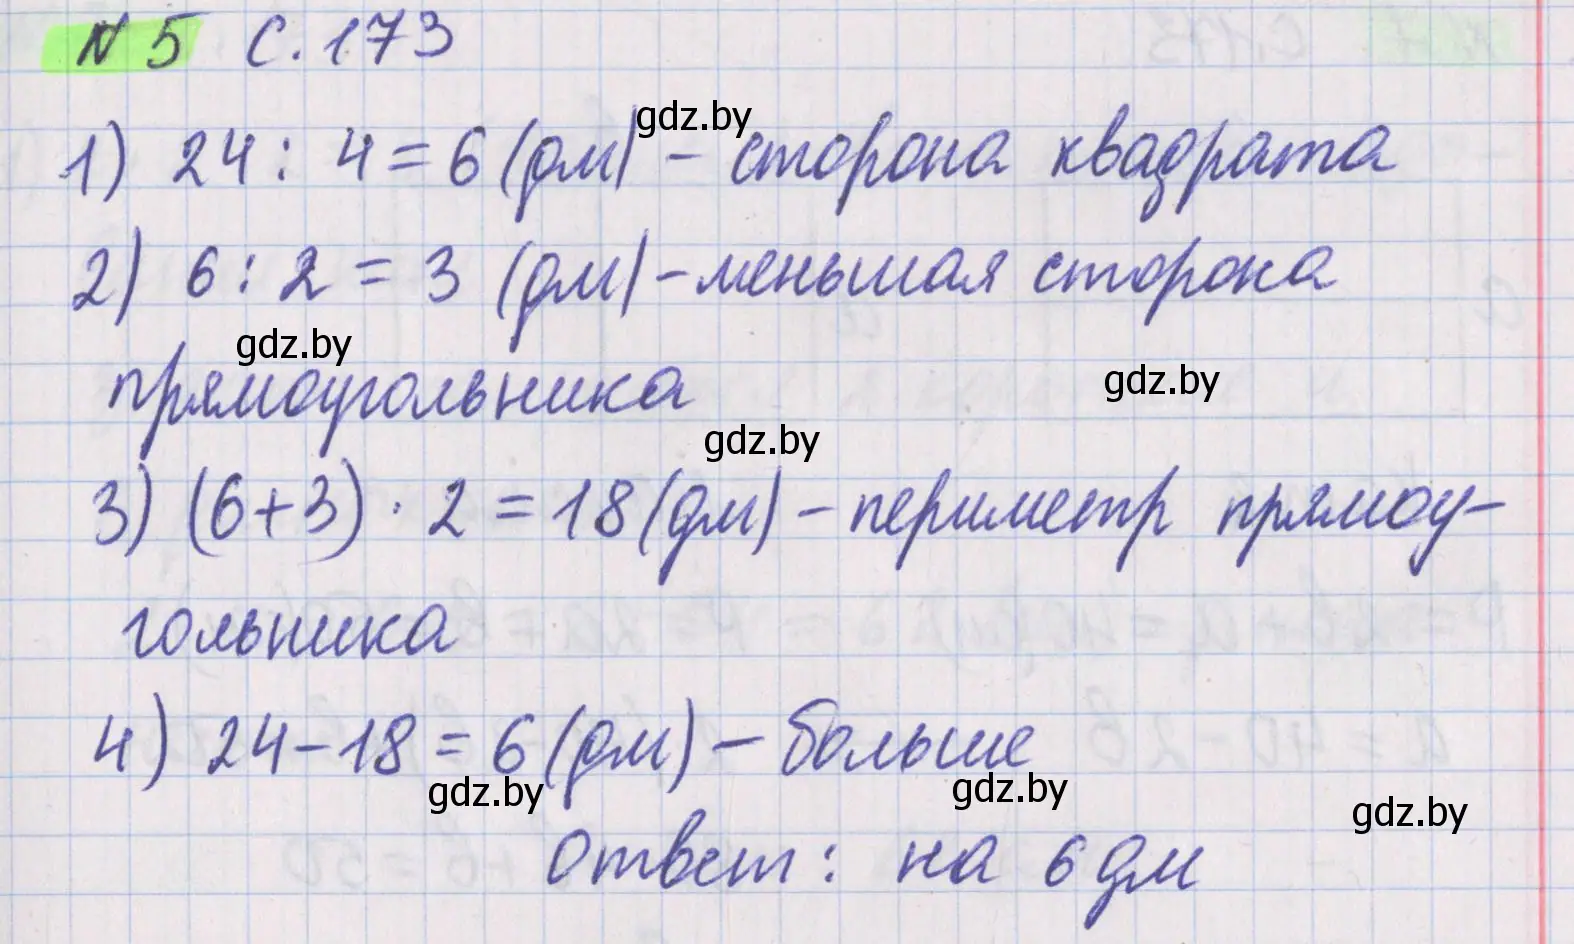 N 5 с. 173
gdz.by
1) 24 : 4 = 6 (дм) - сторона квадрата
2) 6 : 2 = 3 (дм) - меньшая сторона
gdz.by
прямоугольника
gdz.by
gdz.by
3) (6+3) · 2 = 18 (дм) - периметр прямоу-
гольника
4) 24 - 18 = 6 (дм) - больше
gdz.by
gdz.by
gdz.by
Ответ: на 6 дм